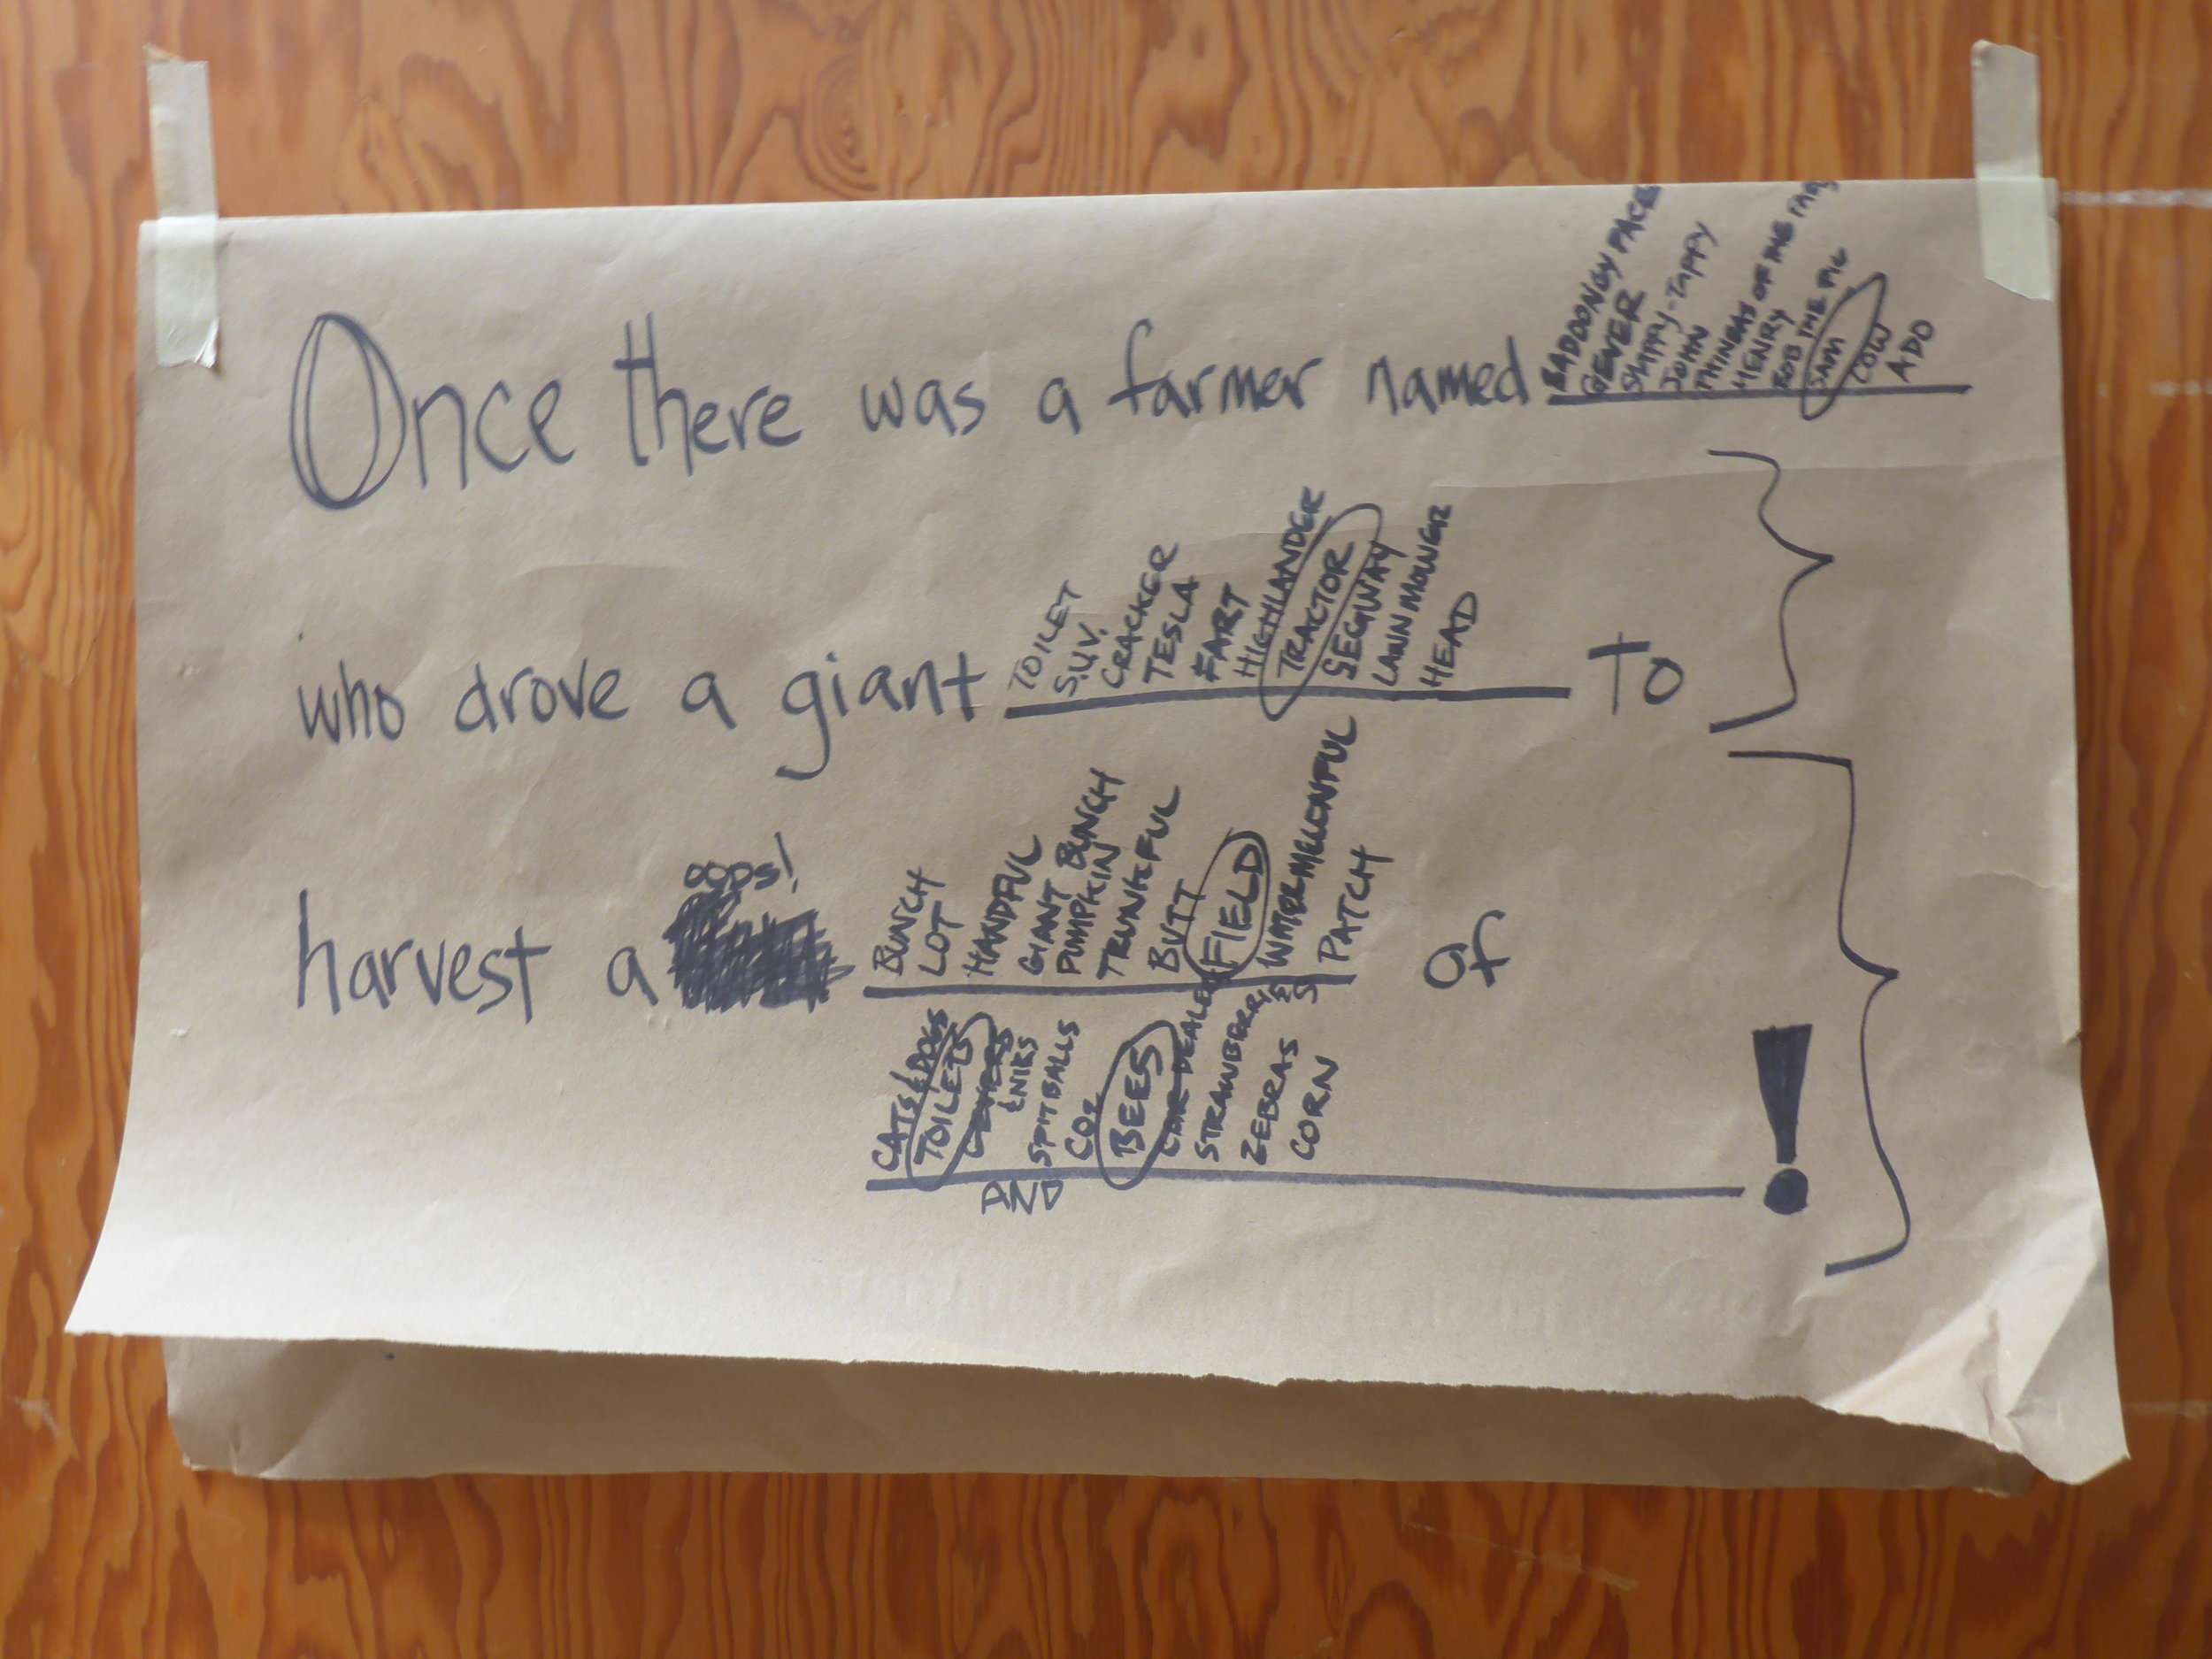 Once there was a farmer named
GEVER
SLAPPY-TAPPY
JOHN
HENRY
BOB THE PIG
SAM
COW
ADD
who drove a giant to
TOILET
S.U.V.
CRACKER
TESLA
FART
HIGHLANDER
TRACTOR
SEGWAY
LAWNMOWER
HEAD
harvest a of
OOPS!
BUNCH
LOT
HANDFUL
GIANT BUNCH
PUMPKIN
TRUNKFUL
BUTT
FIELD
WATERMELENFUL
PATCH
CATS & DOGS
TOILETS
GEVERS
SPITBALLS
CO2
BEES
STRAWBERRIES
ZEBRAS
CORN
!
AND